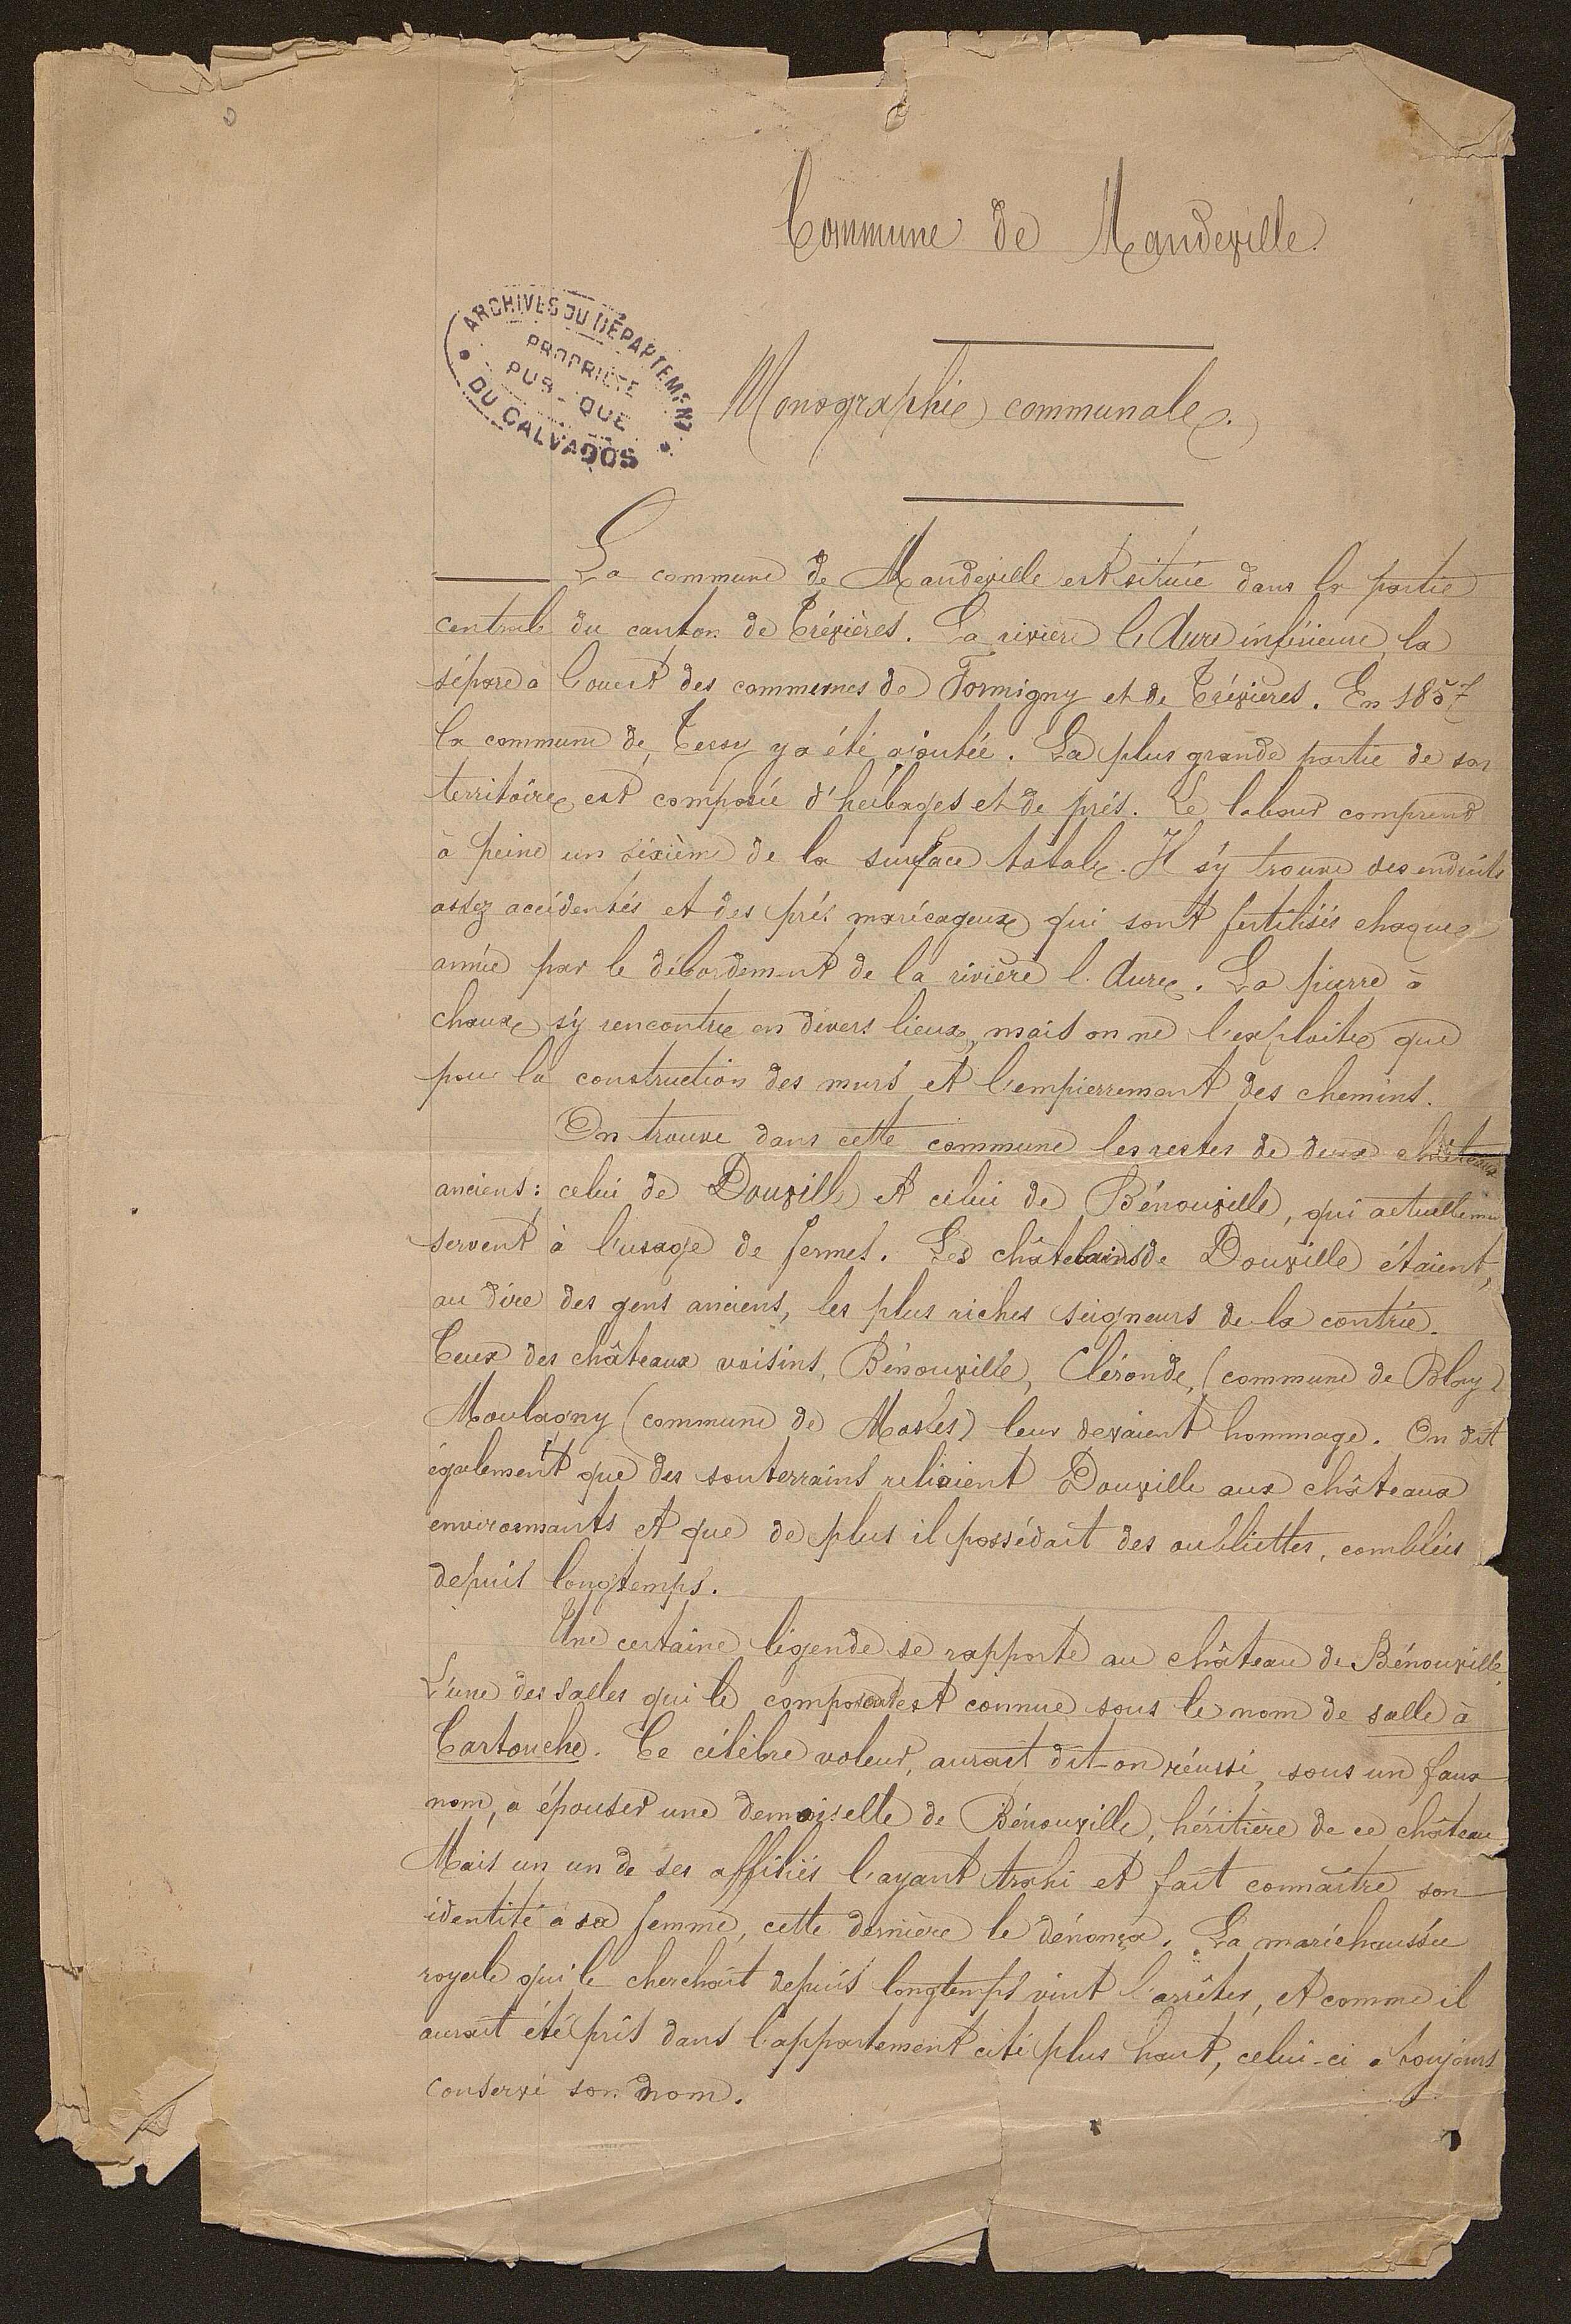 Commune de Mandeville.
ARCHIVES DU DÉPARTEMENT
PROPRIÉTÉ
PUB-QUE
DU CALVADOS
Monographie communale.
La commune de Mandeville est située dans la partie
centrale du canton de Trévières. La rivière l'Aure inférieure, la
sépare à l'ouest des communes de Formigny et de Trévières. En 1857
la commune de Tessy y a été ajoutée. La plus grande partie de son
territoire est composée d'herbages et de prés. Le labour comprend
à peine un sixième de la surface totale. Il s'y trouve des endroits
assez accidentés et des prés marécageux qui sont fertilisés chaque
année par le débordement de la rivière l'Aure. La pierre à
chaux s'y rencontre en divers lieux, mais on ne l'exploite que
pour la construction des murs et l'empierrement des chemins.
On trouve dans cette commune les restes de deux châteaux
anciens : celui de Douville et celui de Bénouville, qui actuellement
servent à l'usage de fermes. Les châtelains de Douville étaient,
au dire des gens anciens, les plus riches seigneurs de la contrée.
Ceux des châteaux voisins, Bénouville, Cléronde, (commune de Blay)
Moulagny (commune de Mosles) leur devaient hommage. On dit
également que des souterrains reliaient Douville aux châteaux
environnants et que de plus il possédait des oubliettes, comblées
depuis longtemps.
Une certaine légende se rapporte au château de Bénouville.
L'une des salles qui le composent est connue sous le nom de salle à
Cartouche. Ce célèbre voleur, aurait dit-on réussi, sous un faux
nom, à épouser une demoiselle de Bénouville, héritière de ce château.
Mais un un de ses affiliés l'ayant trahi et fait connaître son
identité à sa femme, cette dernière le dénonça. La maréchaussée
royale qui le cherchait depuis longtemps vint l'arrêter, et comme il
aurait été pris dans l'appartement cité plus haut, celui-ci a toujours
conservé son nom.